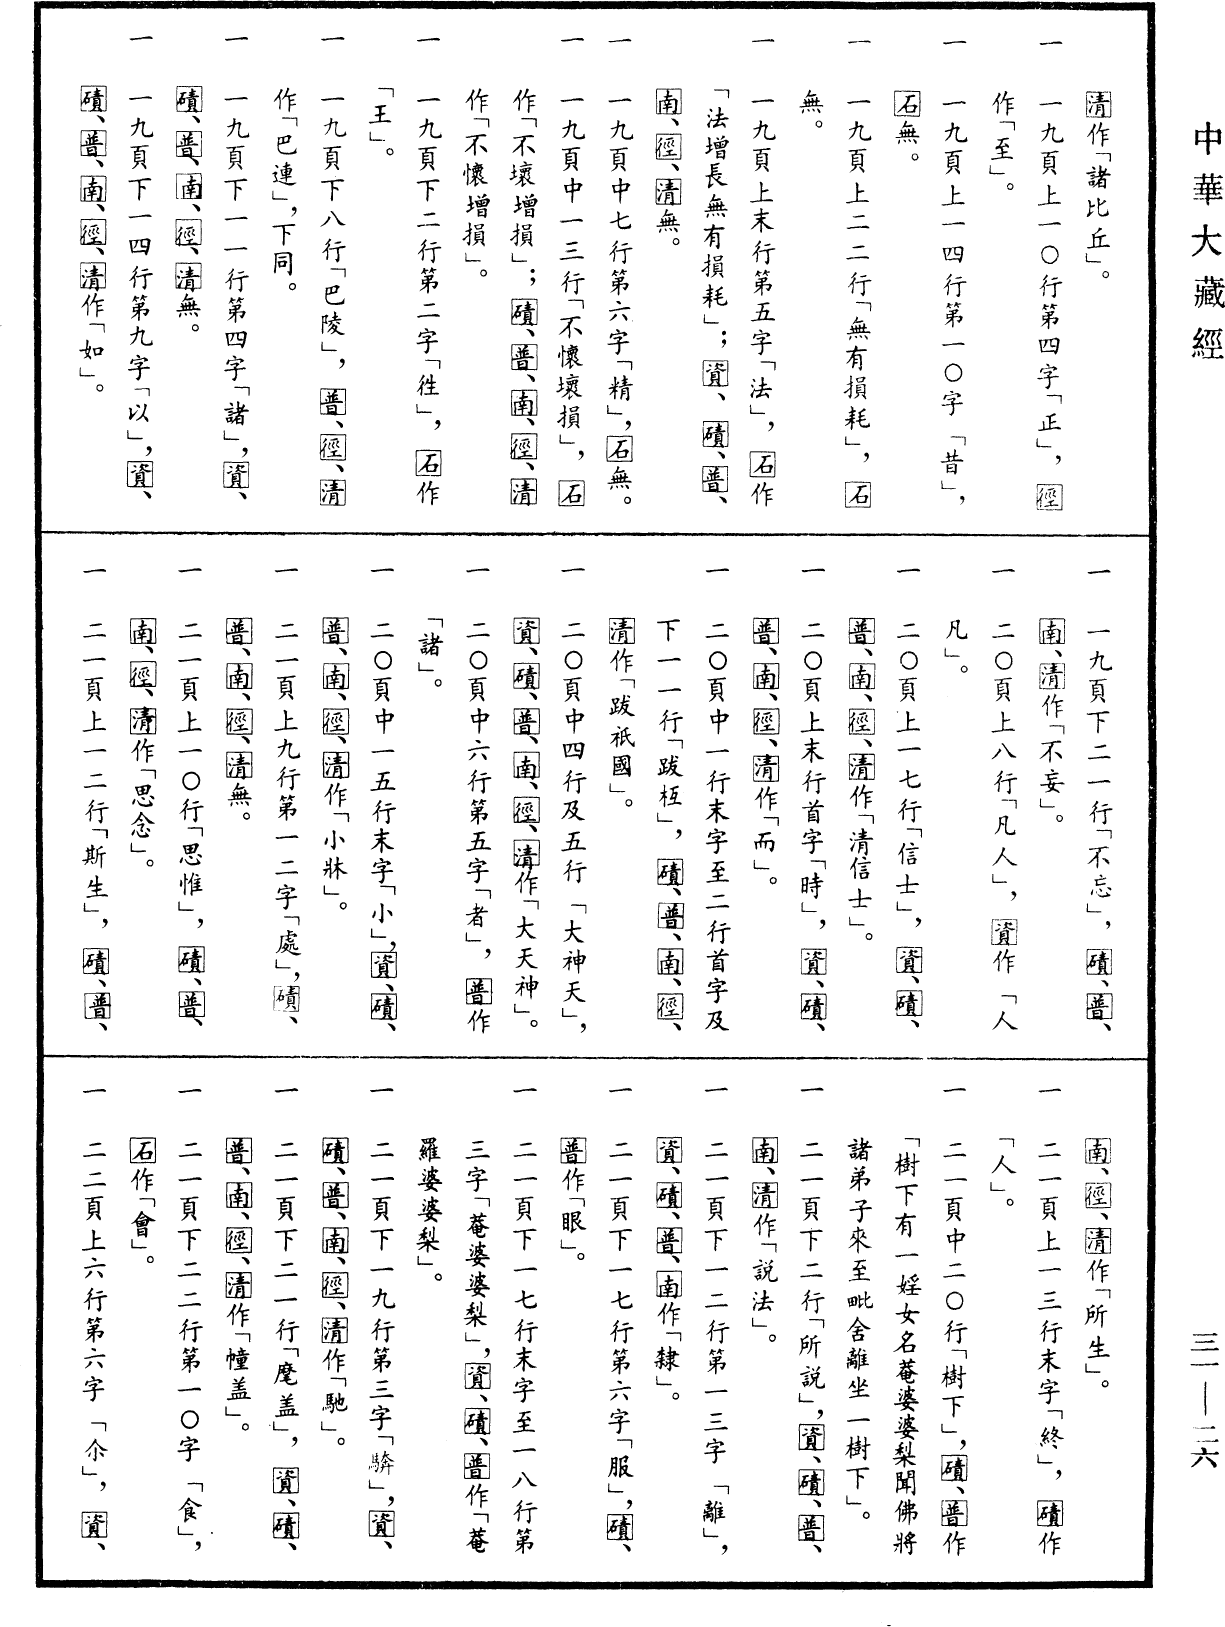 中華大藏經
三一—二六
清作「諸比丘」。
一 一九頁上一〇行第四字「正」，徑
作「至」。
一 一九頁上一四行第一〇字「昔」，
石無。
一 一九頁上二二行「無有損耗」，石
無。
一 一九頁上末行第五字「法」，石作
「法增長無有損耗」；資、磧、普、
南、徑、清無。
一 一九頁中七行第六字「精」，石無。
一 一九頁中一三行「不懷壞損」，石
作「不壞增損」；磧、普、南、徑、清
作「不懷增損」。
一 一九頁下二行第二字「徃」，石作
「王」。
一 一九頁下八行「巴陵」，普、徑、清
作「巴連」，下同。
一 一九頁下一一行第四字「諸」，資、
磧、普、南、徑、清無。
一 一九頁下一四行第九字「以」，資、
磧、普、南、徑、清作「如」。
一 一九頁下二一行「不忘」，磧、普、
南、清作「不妄」。
一 二〇頁上八行「凡人」，資作「人
凡」。
一 二〇頁上一七行「信士」，資、磧、
普、南、徑、清作「清信士」。
一 二〇頁上末行首字「時」，資、磧、
普、南、徑、清作「而」。
一 二〇頁中一行末字至二行首字及
下一一行「跋枑」，磧、普、南、徑、
清作「跋祇國」。
一 二〇頁中四行及五行「大神天」，
資、磧、普、南、徑、清作「大天神」。
一 二〇頁中六行第五字「者」，普作
「諸」。
一 二〇頁中一五行末字「小」，資、磧、
普、南、徑、清作「小牀」。
一 二一頁上九行第一二字「處」，磧、
普、南、徑、清無。
一 二一頁上一〇行「思惟」，磧、普、
南、徑、清作「思念」。
一 二一頁上一二行「斯生」，磧、普、
南、徑、清作「所生」。
一 二一頁上一三行末字「終」，磧作
「人」。
一 二一頁中二〇行「樹下」，磧、普作
「樹下有一婬女名菴婆婆梨聞佛將
諸弟子來至毗舍離坐一樹下」。
一 二一頁下二行「所説」，資、磧、普、
南、清作「説法」。
一 二一頁下一二行第一三字「離」，
資、磧、普、南作「隸」。
一 二一頁下一七行第六字「服」，磧、
普作「眼」。
一 二一頁下一七行末字至一八行第
三字「菴婆婆梨」，資、磧、普作「菴
羅婆婆梨」。
一 二一頁下一九行第三字「騎」，資、
磧、普、南、徑、清作「馳」。
一 二一頁下二一行「麾盖」，資、磧、
普、南、徑、清作「幢盖」。
一 二一頁下二二行第一〇字「食」，
石作「會」。
一 二二頁上六行第六字「尒」，資、